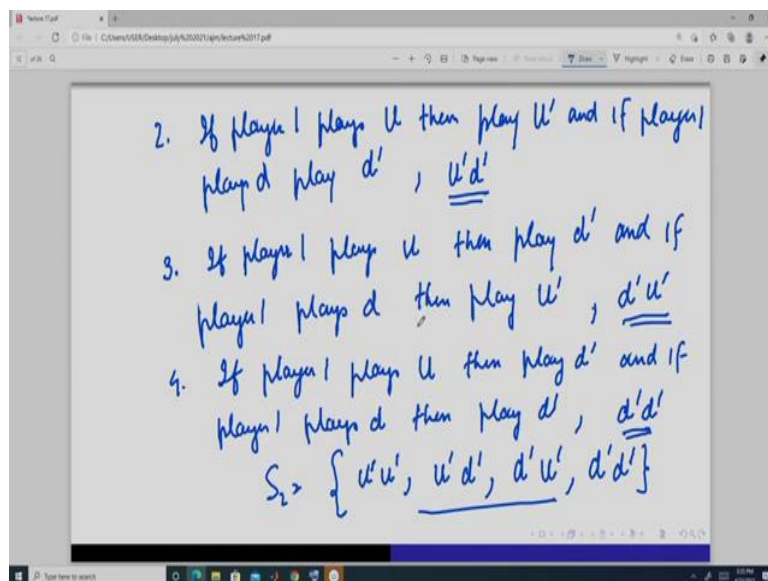 lecture 17.pdf
File | C:/Users/USER/Desktop/july%202021/ajm/lecture%2017.pdf
Page view Draw Highlight Erase
2. If player 1 plays u then play u' and if player 1
plays d play d' , u'd'
3. If player 1 plays u then play d' and if
player 1 plays d then play u' , d'u'
4. If player 1 plays u then play d' and if
player 1 plays d then play d' , d'd'
S₂ = { u'u', u'd', d'u', d'd' }
Type here to search